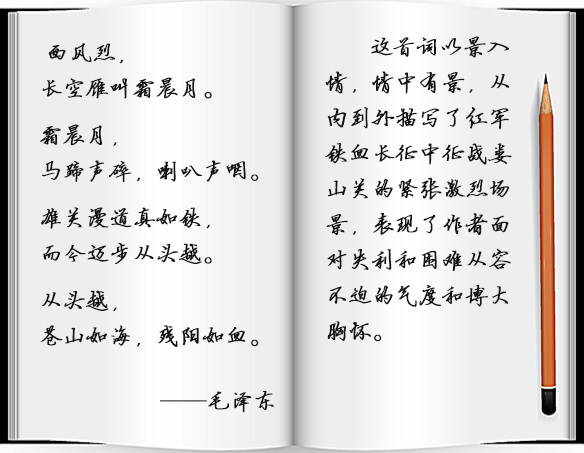 西风烈，
长空雁叫霜晨月。
霜晨月，
马蹄声碎，喇叭声咽。
雄关漫道真如铁，
而今迈步从头越。
从头越，
苍山如海，残阳如血。
——毛泽东
这首词以景入
情，情中有景，从
内到外描写了红军
铁血长征中征战娄
山关的紧张激烈场
景，表现了作者面
对失利和困难从容
不迫的气度和博大
胸怀。